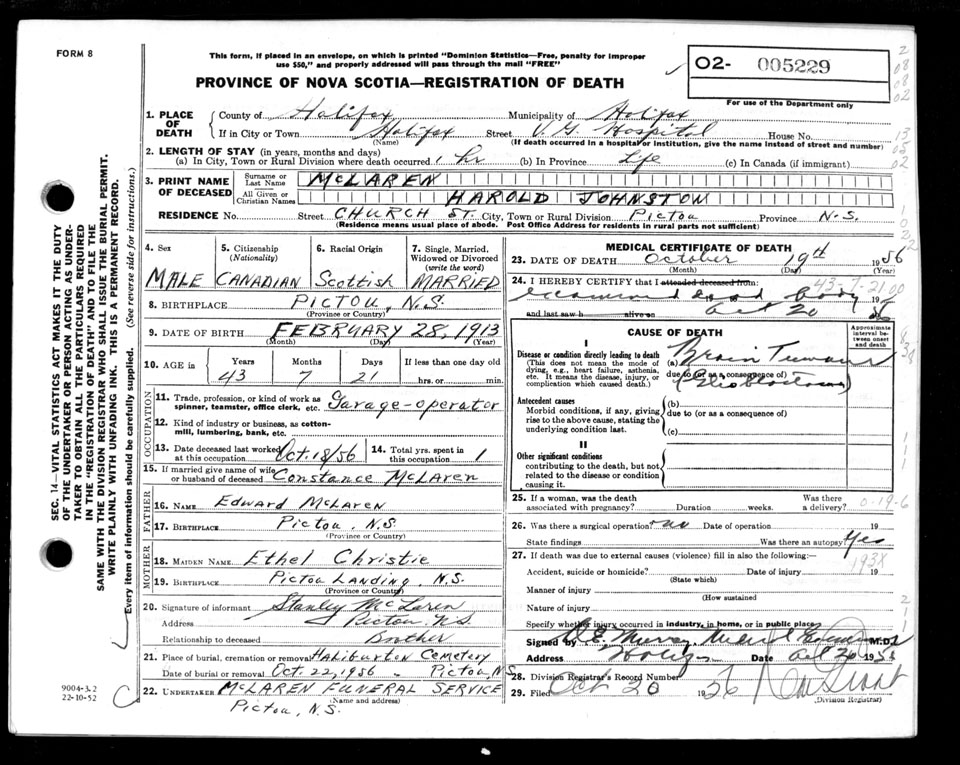 FORM 8
This form, if placed in an envelope, on which is printed "Dominion Statistics—Free, penalty for improper
use $50," and properly addressed will pass through the mail "FREE"
PROVINCE OF NOVA SCOTIA—REGISTRATION OF DEATH
O2- 005229
For use of the Department only
1. PLACE OF DEATH
County of Halifax Municipality of Halifax
If in City or Town Halifax Street V. G. Hospital House No.
(Name) (If death occurred in a hospital or institution, give the name instead of street and number)
2. LENGTH OF STAY (in years, months and days)
(a) In City, Town or Rural Division where death occurred 1 hr (b) In Province Life (c) In Canada (if immigrant)
3. PRINT NAME OF DECEASED
Surname or Last Name McLAREN
All Given or Christian Names HAROLD JOHNSTON
RESIDENCE No. Street CHURCH ST. City, Town or Rural Division Pictou Province N.S.
(Residence means usual place of abode. Post Office Address for residents in rural parts not sufficient)
4. Sex 5. Citizenship (Nationality) 6. Racial Origin 7. Single, Married, Widowed or Divorced (write the word)
MALE CANADIAN Scottish MARRIED
8. BIRTHPLACE PICTOU, N.S.
(Province or Country)
9. DATE OF BIRTH FEBRUARY 28, 1913
(Month) (Day) (Year)
10. AGE in Years Months Days If less than one day old
43 7 21 hrs. or min.
OCCUPATION
11. Trade, profession, or kind of work as spinner, teamster, office clerk, etc. Garage-operator
12. Kind of industry or business, as cotton-mill, lumbering, bank, etc.
13. Date deceased last worked at this occupation Oct. 18/56 14. Total yrs. spent in this occupation 1
15. If married give name of wife or husband of deceased Constance McLaren
FATHER
16. NAME Edward McLaren
17. BIRTHPLACE Pictou, N.S.
(Province or Country)
MOTHER
18. MAIDEN NAME Ethel Christie
19. BIRTHPLACE Pictou Landing, N.S.
(Province or Country)
20. Signature of informant Stanley McLaren
Address Pictou, N.S.
Relationship to deceased Brother
21. Place of burial, cremation or removal Haliburton Cemetery
Date of burial or removal Oct. 22, 1956 Pictou, N.S.
22. UNDERTAKER McLAREN FUNERAL SERVICE
(Name and address)
Pictou, N.S.
MEDICAL CERTIFICATE OF DEATH
23. DATE OF DEATH October 19th 1956
(Month) (Day) (Year)
24. I HEREBY CERTIFY that I attended deceased from: 43-7-2100
examined dead body
and last saw h alive on Oct 20 1956
CAUSE OF DEATH
Approximate interval between onset and death
I
Disease or condition directly leading to death
(This does not mean the mode of dying, e.g., heart failure, asthenia, etc. It means the disease, injury, or complication which caused death.)
(a) Brain Tumour
due to (or as a consequence of)
Antecedent causes
Morbid conditions, if any, giving rise to the above cause, stating the underlying condition last.
(b)
due to (or as a consequence of)
(c)
II
Other significant conditions
contributing to the death, but not related to the disease or condition causing it.
25. If a woman, was the death associated with pregnancy? Duration weeks. Was there a delivery?
26. Was there a surgical operation? no Date of operation 19
State findings Was there an autopsy? Yes
27. If death was due to external causes (violence) fill in also the following:—
193X
Accident, suicide or homicide? Date of injury 19
(State which)
Manner of injury
(How sustained
Nature of injury
Specify whether injury occurred in industry, in home, or in public place
Signed by E. Murray M.D.
Address Date Oct 20 1956
28. Division Registrar's Record Number
29. Filed Oct 20 1956
(Division Registrar)
SEC. 14—VITAL STATISTICS ACT MAKES IT THE DUTY
OF THE UNDERTAKER OR PERSON ACTING AS UNDER-
TAKER TO OBTAIN ALL THE PARTICULARS REQUIRED
IN THE "REGISTRATION OF DEATH" AND TO FILE THE
SAME WITH THE DIVISION REGISTRAR WHO SHALL ISSUE THE BURIAL PERMIT.
WRITE PLAINLY WITH UNFADING INK. THIS IS A PERMANENT RECORD.
Every item of information should be carefully supplied. (See reverse side for instructions.)
9004-3.2
22-10-52
C